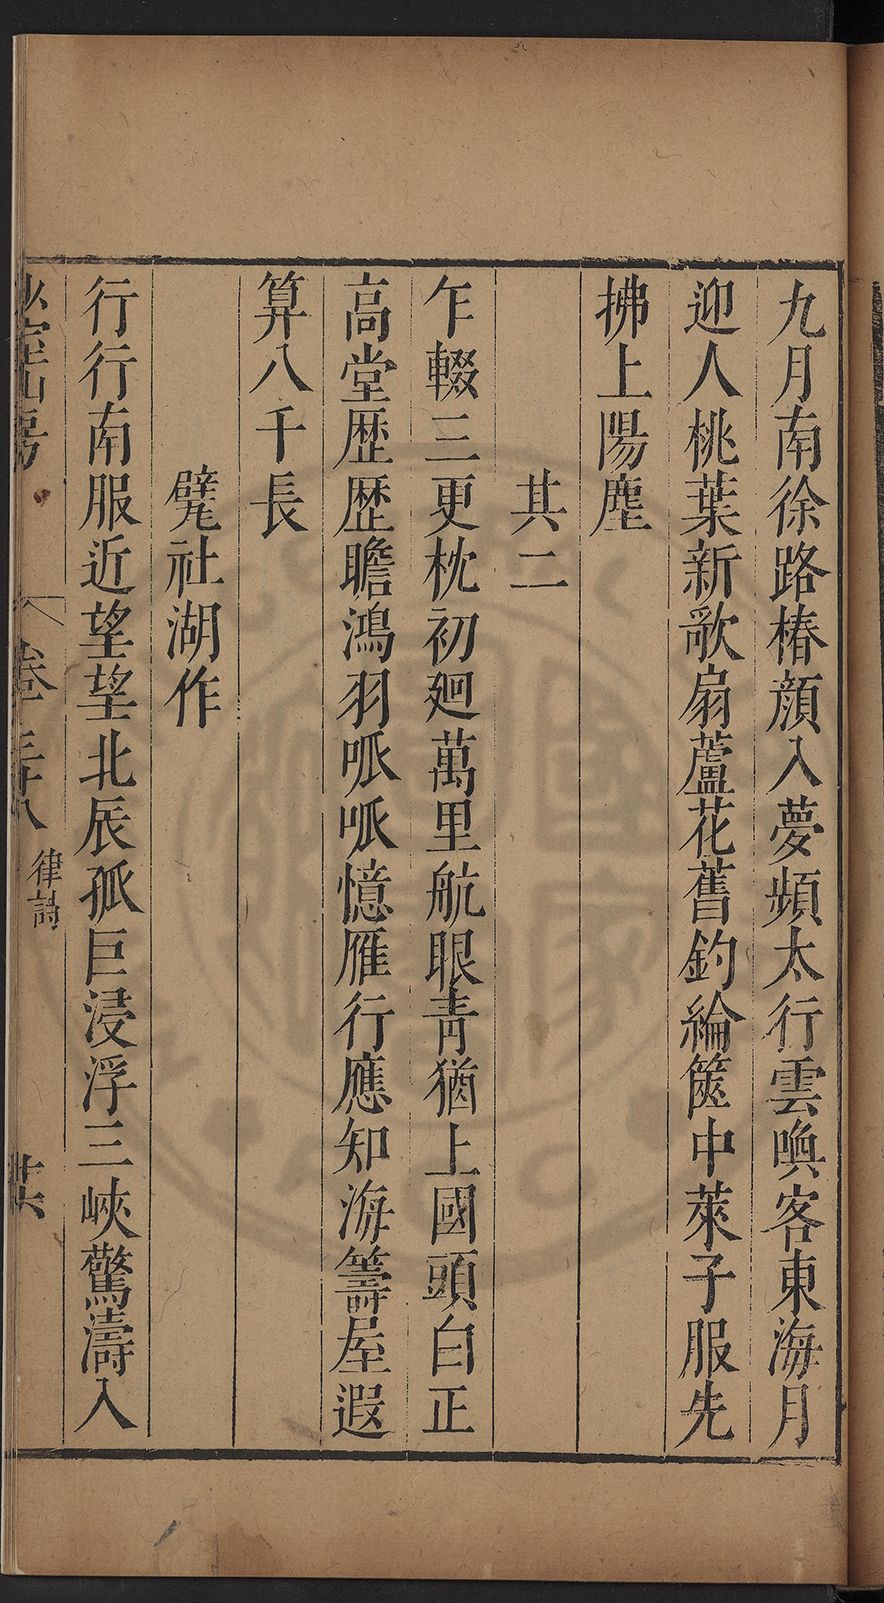 九月南徐路椿顔入夢頻太行雲喚客東海月
迎人桃葉新歌扇蘆花舊釣綸篋中萊子服先
拂上陽塵
其二
乍輟三更枕初廻萬里航眼靑猶上國頭白正
高堂歴歴瞻鴻羽呱呱憶雁行應知海籌屋遐
算八千長
甓社湖作
行行南服近望望北辰孤巨浸浮三峽驚濤入
山房 卷三十八 律詩